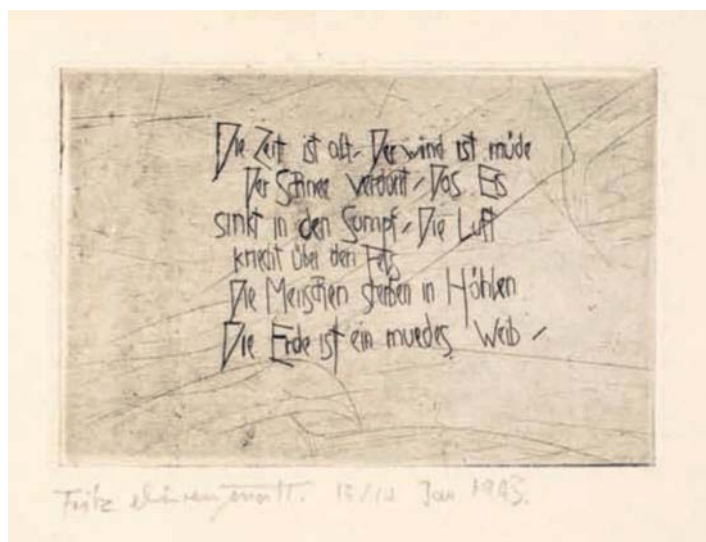 Die Zeit ist alt, Der wind ist müde
Der Schnee verdorrt, Das Eis
sinkt in den Sumpf, Die Luft
kriecht über den Fels
Die Menschen sterben in Höhlen
Die Erde ist ein muedes Weib,
Fritz dürrenmatt. Jan 1943.